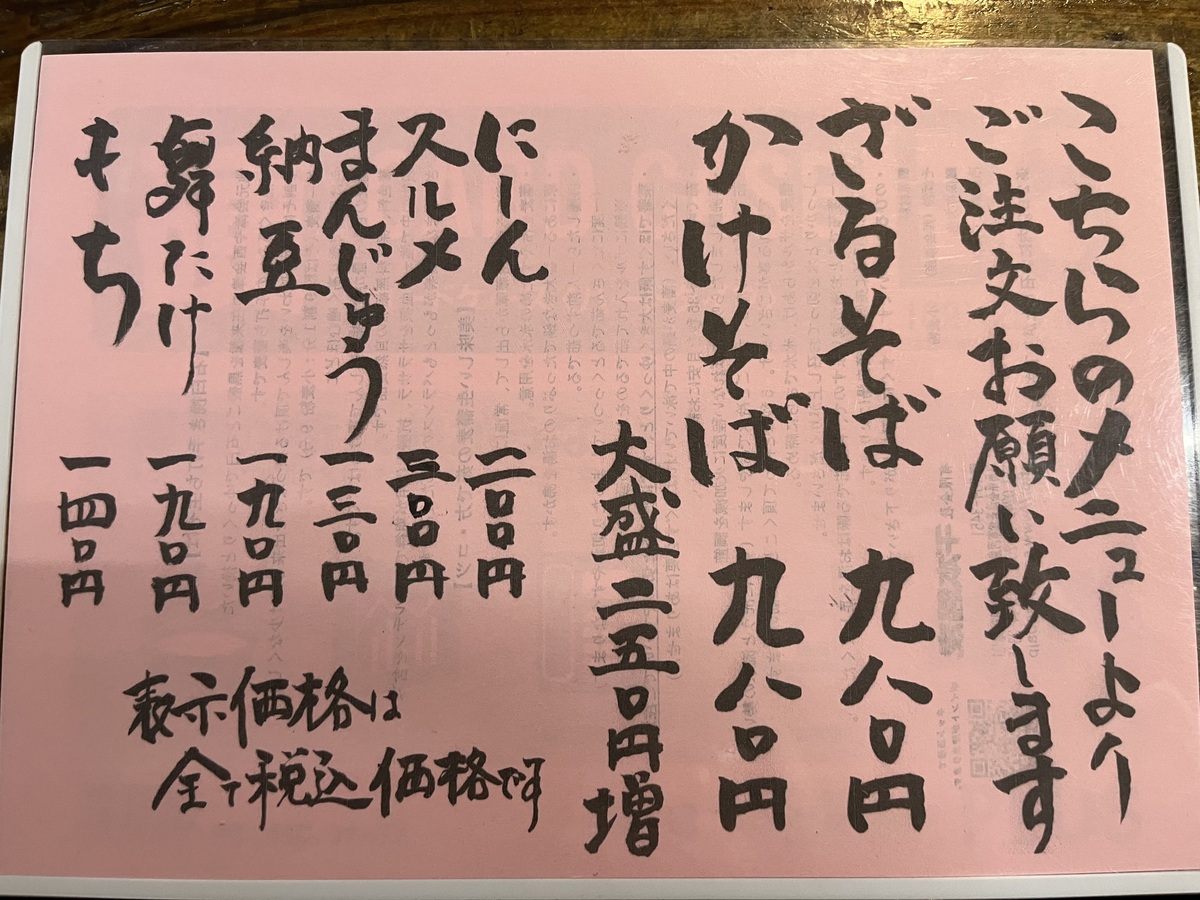 こちらのメニューより
ご注文お願い致します
ざるそば 九八〇円
かけそば 九八〇円
大盛二五〇円増
にーん 二〇〇円
スルメ 三〇〇円
まんじゅう 一三〇円
納豆 一九〇円
舞たけ 一九〇円
もち 一四〇円
表示価格は
全て税込価格です